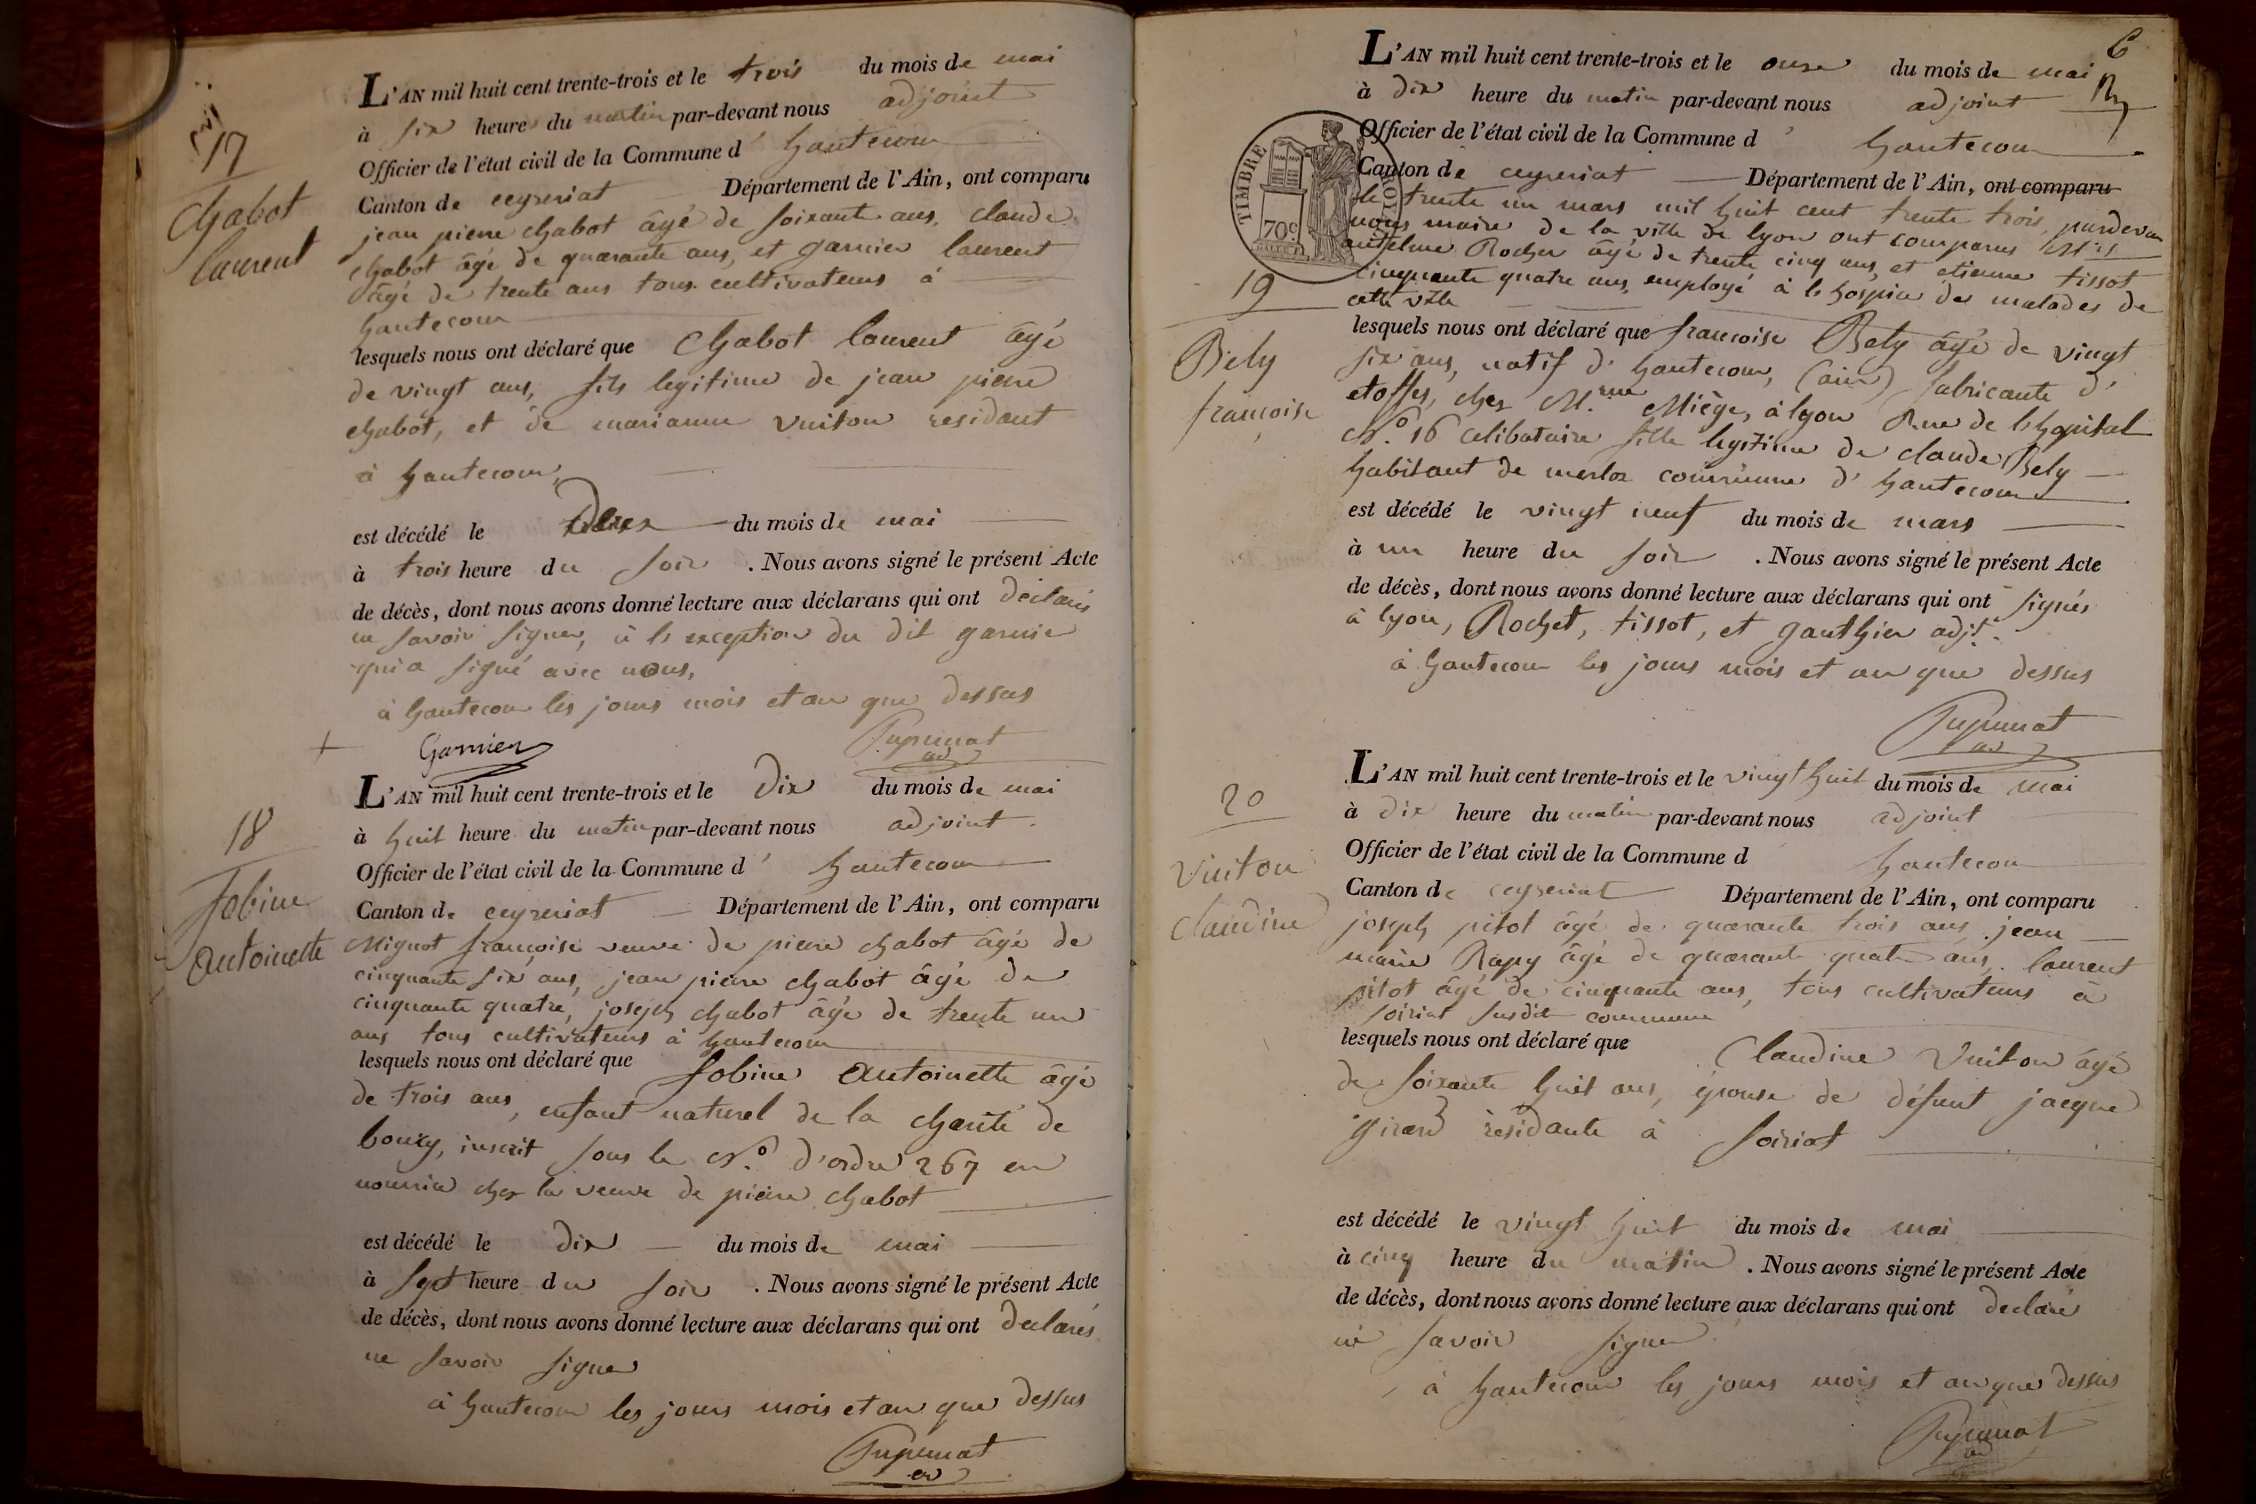 17
Chabot
laurent
L'AN mil huit cent trente-trois et le trois du mois de mai
à six heure du matin par-devant nous adjoint
Officier de l'état civil de la Commune d' hautecour
Canton de ceyzeriat Département de l'Ain, ont comparu
jean pierre chabot âgé de soixante ans, claude
chabot âgé de quarante ans, et garnier laurent
âgé de trente ans tous cultivateurs à
hautecour
lesquels nous ont déclaré que Chabot laurent âgé
de vingt ans, fils legitime de jean pierre
chabot, et de marianne vuiton residant
à hautecour,
est décédé le deux du mois de mai
à trois heure du soir . Nous avons signé le présent Acte
de décès, dont nous avons donné lecture aux déclarans qui ont déclarés
ne savoir signer, à le exception du dit garnier
qui a signé avec nous,
à hautecour les jours mois et an que dessus
Garnier Pupunat
ad
18
Jobine
Antoinette
L'AN mil huit cent trente-trois et le dix du mois de mai
à huit heure du matin par-devant nous adjoint
Officier de l'état civil de la Commune d' hautecour
Canton de ceyzeriat Département de l'Ain, ont comparu
Mignot françoise veuve de pierre chabot âgé de
cinquante six ans, jean pierre chabot âgé de
cinquante quatre, joseph chabot âgé de trente un
ans tous cultivateurs à hautecour
lesquels nous ont déclaré que Jobine Antoinette âgé
de trois ans, enfant naturel de la charité de
bourg, inscrit sous le N.o d'ordre 267 en
nourrice chez la veuve de pierre chabot
est décédé le dix du mois de mai
à sept heure du soir . Nous avons signé le présent Acte
de décès, dont nous avons donné lecture aux déclarans qui ont declarés
ne savoir signer
à hautecour les jours mois et an que dessus
Pupunat
ad
6
L'AN mil huit cent trente-trois et le onze du mois de mai
à dix heure du matin par-devant nous adjoint
Officier de l'état civil de la Commune d' hautecour
Canton de ceyzeriat Département de l'Ain, ont comparu
le trente un mars mil huit cent trente trois, pardevan
nous maire de la ville de lyon ont comparus
antelme Rocher âgé de trente cinq ans, et etienne tissot
cinquante quatre ans, employé à le hospice des malades de
cette ville
TIMBRE ROYAL
70c
19
Bely
françoise
lesquels nous ont déclaré que françoise Bely âgé de vingt
six ans, natif d' hautecour, (ain) fabricante d'
etoffes, chez M.me Miège, à lyon Rue de l'hopital
N.o 16 celibataire fille legitime de claude Bely
habitant de merloz commune d' hautecour
est décédé le vingt neuf du mois de mars
à un heure du soir . Nous avons signé le présent Acte
de décès, dont nous avons donné lecture aux déclarans qui ont signés
à lyon, Rochet, tissot, et gauthier adj.t
à hautecour les jours mois et an que dessus
Pupunat
ad
20
Vuiton
claudine
L'AN mil huit cent trente-trois et le vingt huit du mois de mai
à dix heure du matin par-devant nous adjoint
Officier de l'état civil de la Commune d hautecour
Canton de ceyzeriat Département de l'Ain, ont comparu
joseph pitot âgé de quarante trois ans, jean
marie Rapy âgé de quarante quatre ans, laurent
pitot âgé de cinquante ans, tous cultivateurs à
soiriat susdite commune
lesquels nous ont déclaré que Claudine Vuiton âgé
de soixante huit ans, épouse de défunt jacque
girard residante à soiriat
est décédé le vingt huit du mois de mai
à cinq heure du matin . Nous avons signé le présent Acte
de décès, dont nous avons donné lecture aux déclarans qui ont declaré
ne savoir signer
à hautecour les jours mois et an que dessus
Pupunat
ad